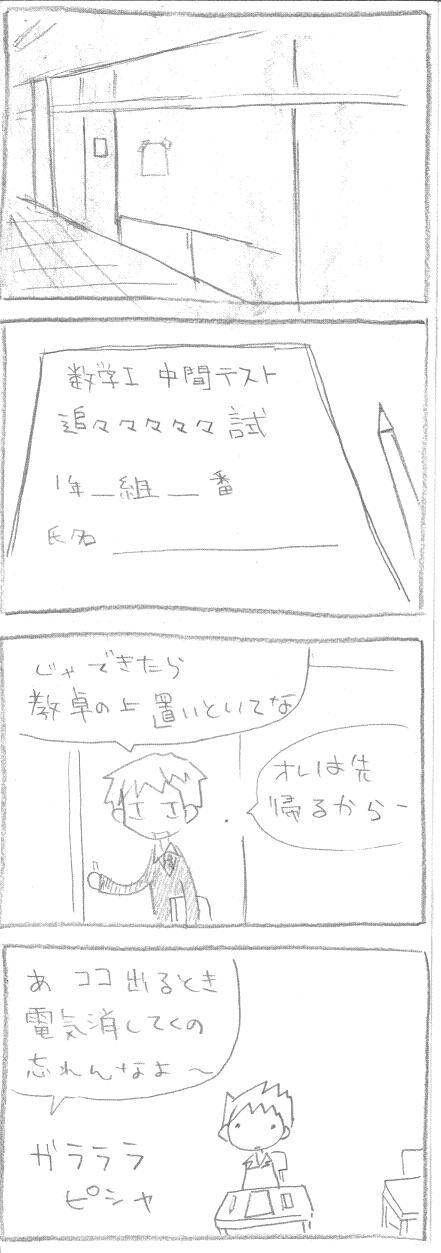 数学I 中間テスト
追々々々々々試
1年＿組＿番
氏名
じゃできたら
教卓の上置いといてな
オレは先
帰るからー
あ ココ出るとき
電気消してくの
忘れんなよ〜
ガラララ
ピシャ